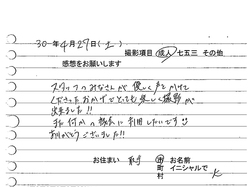 30年4月29日(土)
撮影項目 成人 七五三 その他
感想をお願いします
スタッフのみなさんが優しく声をかけて
くださったおかげでとても楽しく撮影が
出来ました!!
また何かの機会に利用したいです
ありがとうございました!!
お住まい 市 町 村 お名前 イニシャルで K